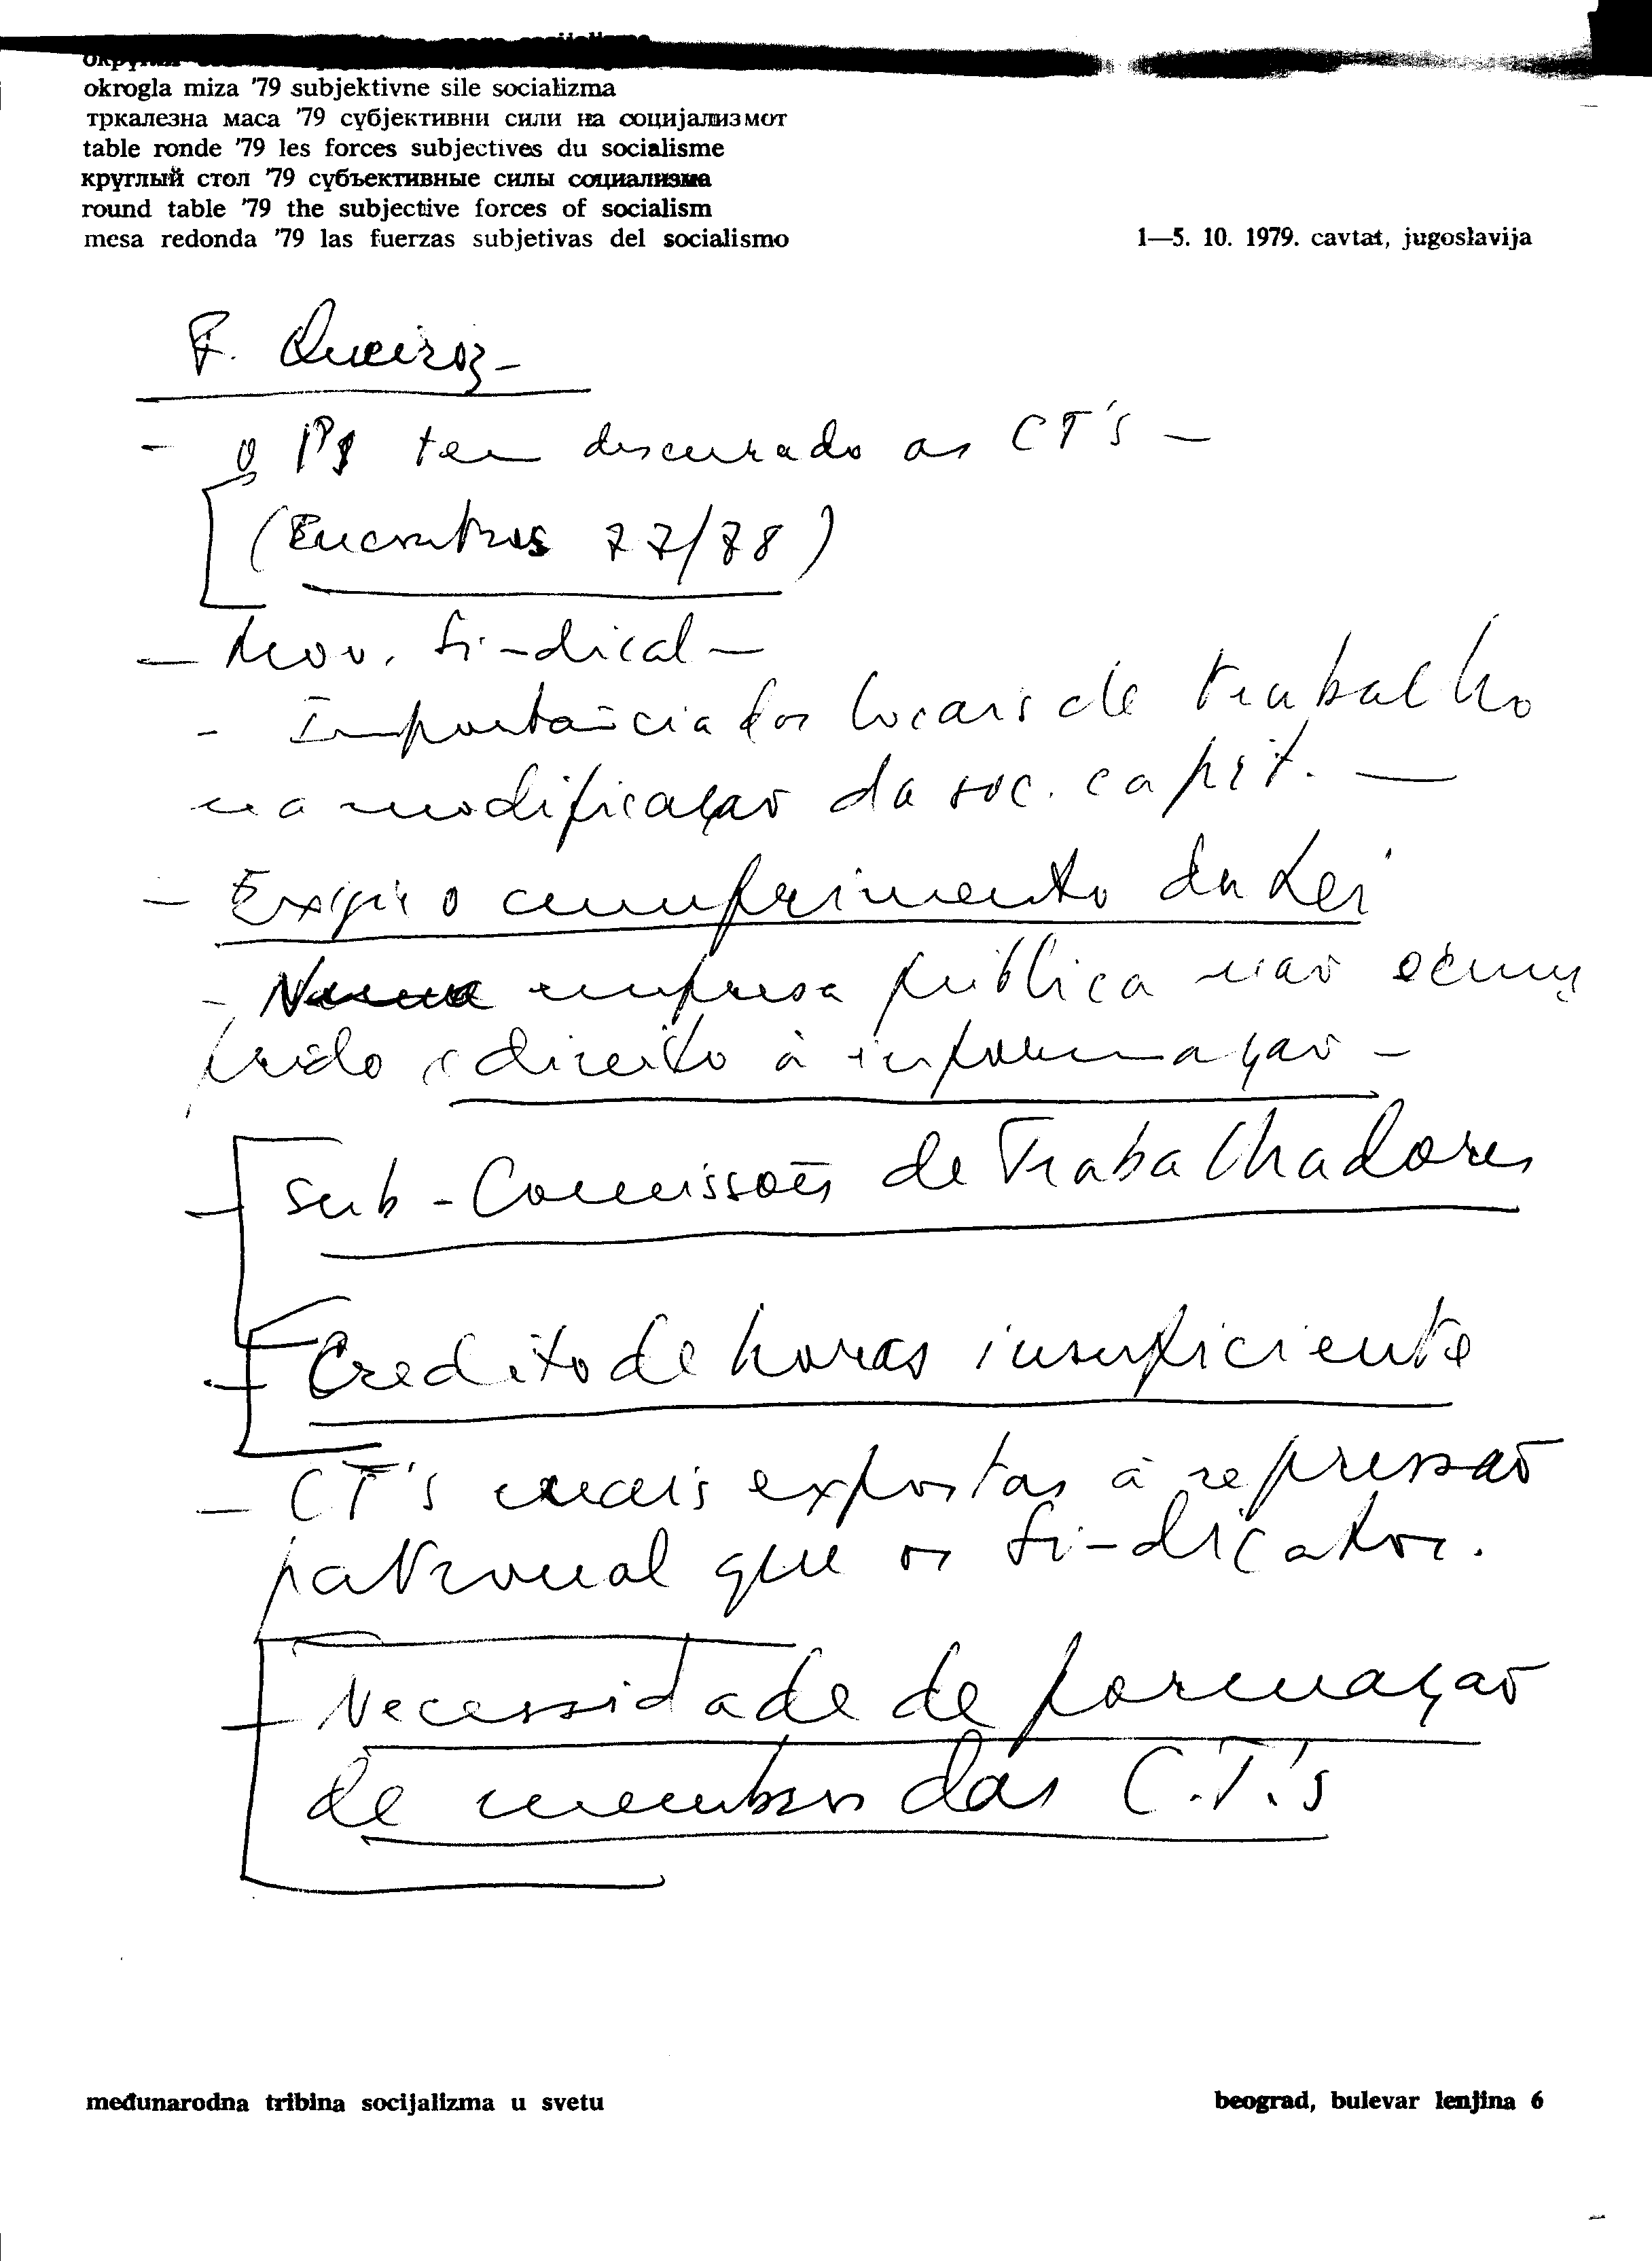 okrogla miza '79 subjektivne sile socializma
тркалезна маса '79 субјективни сили на социјализмот
table ronde '79 les forces subjectives du socialisme
круглый стол '79 субъективные силы социализма
round table '79 the subjective forces of socialism
mesa redonda '79 las fuerzas subjetivas del socialismo
1—5. 10. 1979. cavtat, jugoslavija
F. Queiroz -
- O PS tem descurado as CT's -
(Encontros 77/78)
- Mov. Sindical -
- Importância dos locais de trabalho
na modificação da soc. capit. -
- Exigir o cumprimento da Lei
- empresa pública não é cum
prido o direito à informação -
- Sub-Comissões de Trabalhadores
- Credito de horas insuficiente
- CT's mais expostas à repressão
patronal que os Sindicatos.
- Necessidade de formação
de membros das C.T.'s
međunarodna tribina socijalizma u svetu
beograd, bulevar lenjina 6